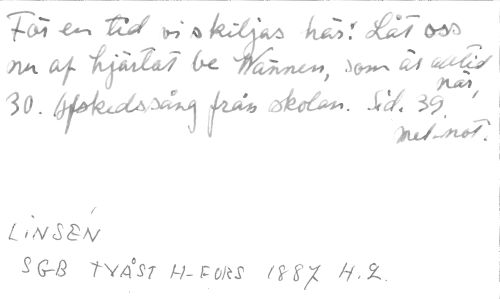 För en tid vi skiljas här! Låt oss
nu af hjärtat be Wännen, som är alltid
när,
30. Afskedssång från skolan. Sid. 39.
mel-not.
LINSÉN
SGB TVÅST H-FORS 1887 H.2.